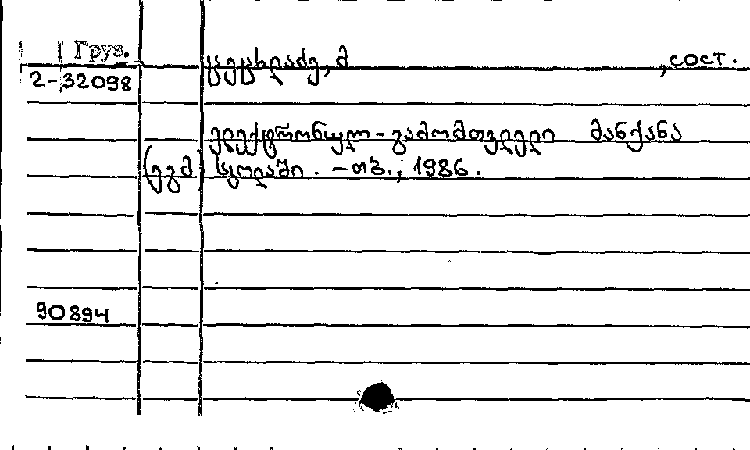 Груз.
2-32098
კაკუხიაძე, მ , сост.
ელექტრონულ-გამომთვლელი მანქანა
(ეგმ) სკოლაში. - თბ., 1986.
90894